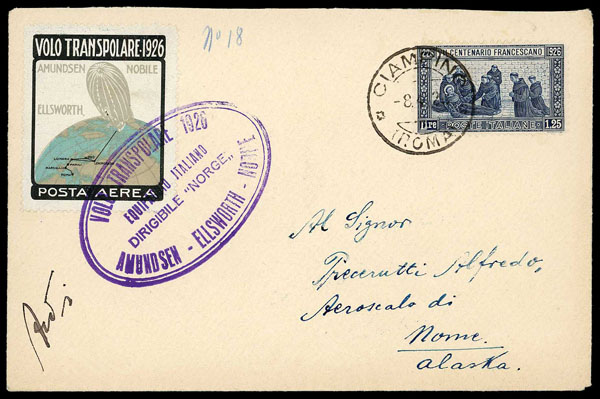 VOLO TRANSPOLARE·1926
AMUNDSEN NOBILE
ELLSWORTH
ROMA
POSTA AEREA
Nº 18
VOLO TRANSPOLARE 1926
EQUIPAGGIO ITALIANO
DIRIGIBILE "NORGE"
AMUNDSEN - ELLSWORTH - NOBILE
CIAMPINO
-8.
(ROMA)
CENTENARIO FRANCESCANO
1926
LIRE
POSTE ITALIANE
1.25
Al Signor
Precerutti Alfredo,
Aeroscalo di
Nome.
Alaska.